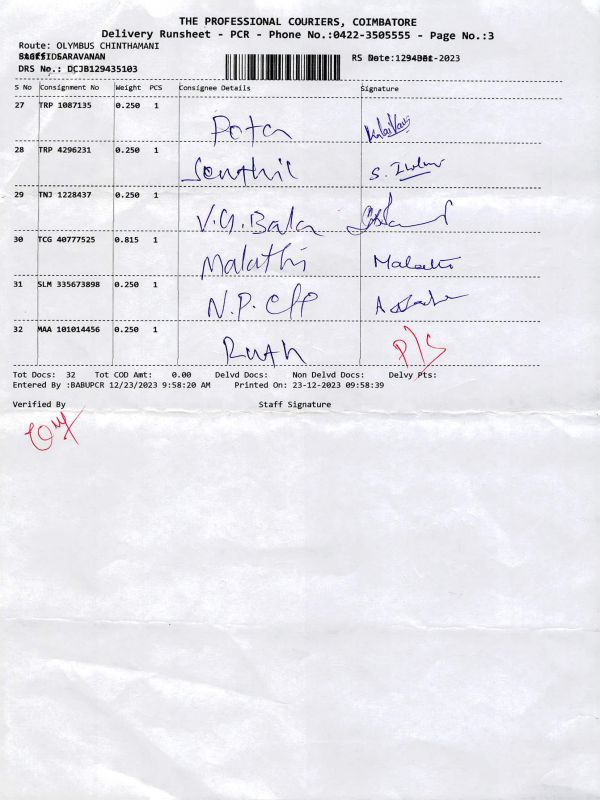 THE PROFESSIONAL COURIERS, COIMBATORE
Delivery Runsheet - PCR - Phone No.:0422-3505555 - Page No.:3
Route: OLYMBUS CHINTHAMANI
SARAVANAN
RS Date: -2023
DRS No.: DCJB129435103
S No Consignment No Weight PCS Consignee Details Signature
27 TRP 1087135 0.250 1
28 TRP 4296231 0.250 1 Senthil
29 TNJ 1228437 0.250 1 V.G.Bala
30 TCG 40777525 0.815 1 Malathi Malathi
31 SLM 335673898 0.250 1 N.P. Off
32 MAA 101014456 0.250 1 Ruth P/S
Tot Docs: 32 Tot COD Amt: 0.00 Delvd Docs: Non Delvd Docs: Delvy Pts:
Entered By :BABUPCR 12/23/2023 9:58:20 AM Printed On: 23-12-2023 09:58:39
Verified By Staff Signature